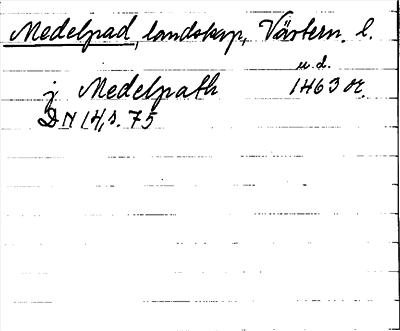 Medelpad, landskap, Västern. l.
u. d.
j Medelpath 1463 or.
DN 14, s. 75